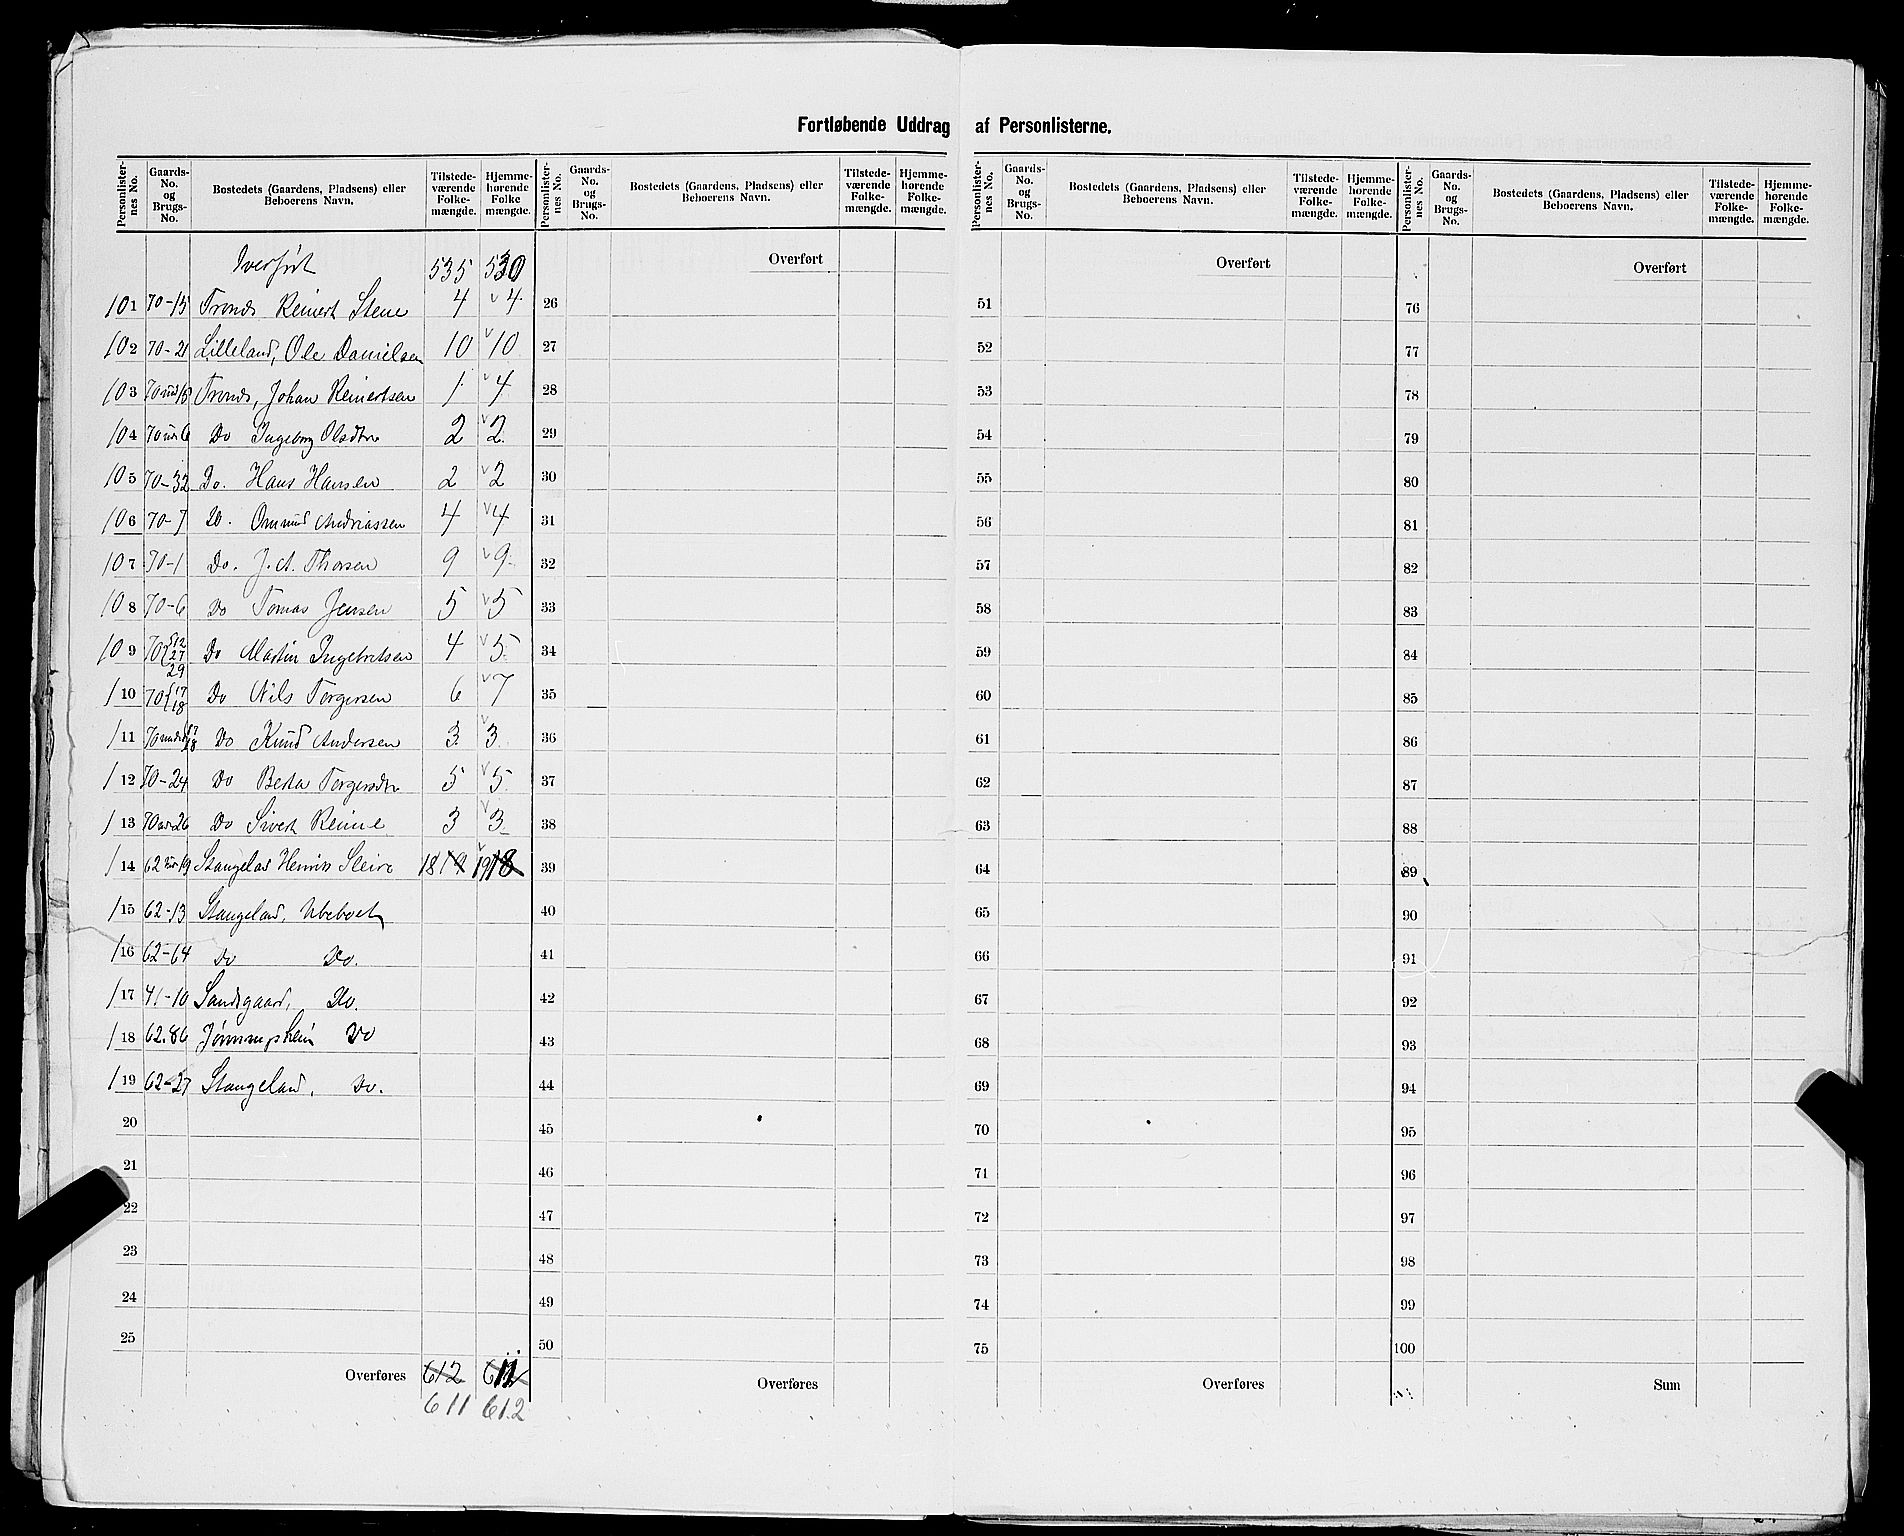 Fortløbende Uddrag af Personlisterne.
Personlister-nes No. | Gaards-No. og Brugs-No. | Bostedets (Gaardens, Pladsens) eller Beboerens Navn. | Tilstede-værende Folke-mængde. | Hjemme-hørende Folke mængde.
Overført 535 530
101 70-15 Tronds Reinert Stene 4 v 4
102 70-21 Lilleland, Ole Danielsen 10 v 10
103 70 und 15 Tronds, Johan Reinertsen 1 v 4
104 70 und 6 Do Ingeborg Olsdtr 2 v 2
105 70-32 Do. Hans Hansen 2 v 2
106 70-7 Do. Ommund Andreassen 4 v 4
107 70-1 Do. J. A. Thorsen 9 v 9
108 70-6 Do Tomas Jensen 5 v 5
109 70 {12 27 29 Do Martin Ingebretsen 4 v 5
110 70 {17 18 Do Nils Torgersen 6 v 7
111 70 under {17 18 Do Knud Andersen 3 v 3
112 70-24 Do Berta Torgersdtr 5 v 5
113 70 26 Do Sivert Reime 3 v 3
114 62 19 Stangeland Henrik 18 19 v 19 18
115 62-13 Stangeland, Ubeboet
116 62-64 Do Do.
117 41-10 Sandsgaard, Do.
118 62.86 Do
119 62-27 Stangeland, Do.
20
21
22
23
24
25
Overføres 612 611
611 612
Personlister-nes No. | Gaards-No. og Brugs-No. | Bostedets (Gaardens, Pladsens) eller Beboerens Navn. | Tilstede-værende Folke-mængde. | Hjemme-hørende Folke-mængde.
Overført
26
27
28
29
30
31
32
33
34
35
36
37
38
39
40
41
42
43
44
45
46
47
48
49
50
Overføres
Personlister-nes No. | Gaards-No. og Brugs-No. | Bostedets (Gaardens, Pladsens) eller Beboerens Navn. | Tilstede-værende Folke-mængde. | Hjemme-hørende Folke-mængde.
Overført
51
52
53
54
55
56
57
58
59
60
61
62
63
64
65
66
67
68
69
70
71
72
73
74
75
Overføres
Personlister-nes No. | Gaards-No. og Brugs-No. | Bostedets (Gaardens, Pladsens) eller Beboerens Navn. | Tilstede-værende Folke-mængde. | Hjemme-hørende Folke-mængde.
Overført
76
77
78
79
80
81
82
83
84
85
86
87
88
89
90
91
92
93
94
95
96
97
98
99
100
Sum